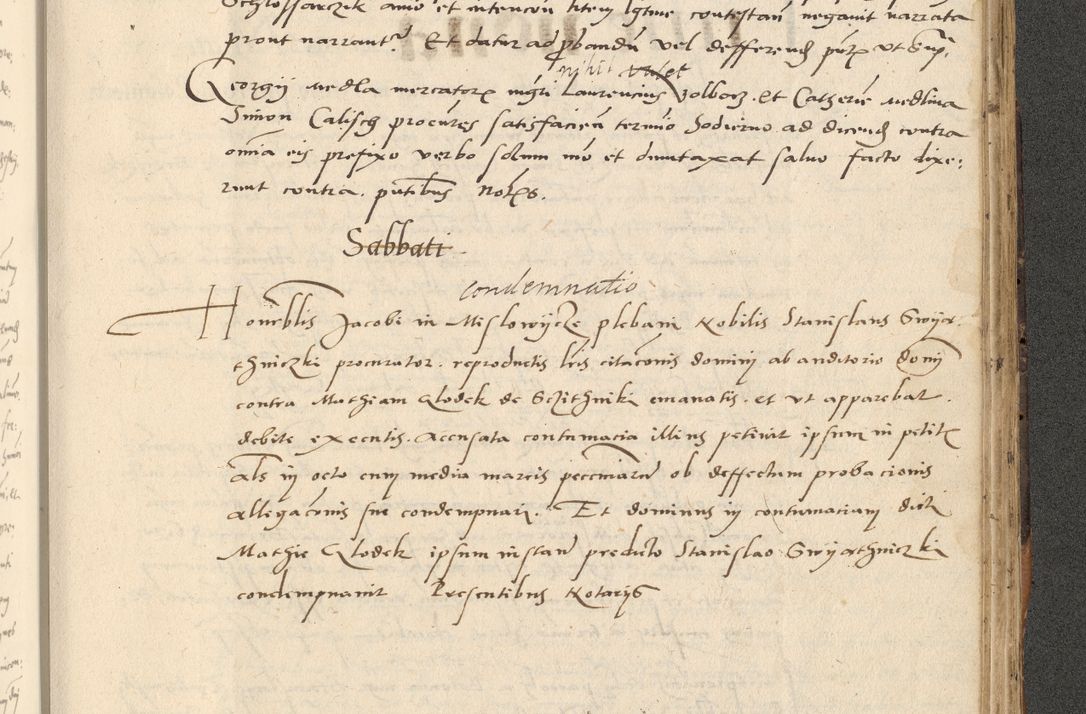 Schlossarczik animo et intencion litem lgtime contestan negavit narrata
prout narrantr Et datur ad pbandu vel defferend
nihil valet
Georgii Medla mercatoris mgri Laurencius Volborz et Catherine Medlina
Simon Calisch procures satisfacien termino hodierno ad dicend contra
omia eis prefixo verbo solum mo et dumtaxat salvo facto dixe:
runt contra. pntibus Notis.
Sabbati
condemnatio
Honrblis Jacobi in Mislowycze plebani Nobilis Stanislaus Gwyaz-
thniczki procurator. reproductis lris citaconis domini ab auditorio domi
contra Mathiam Clodek de Sczithniki emanatis. et ut apparebat.
debite executis. accusata contumacia illius petivit ipsum in petitis
als in octo cum media marcis pecuniarum ob deffectum probacionis
allegaconis sue condempnari. Et dominus in contumaciam dicti
Mathie Clodek ipsum instan predicto Stanislao Gwyazthniczki
condempnavit Presentibus Notariis